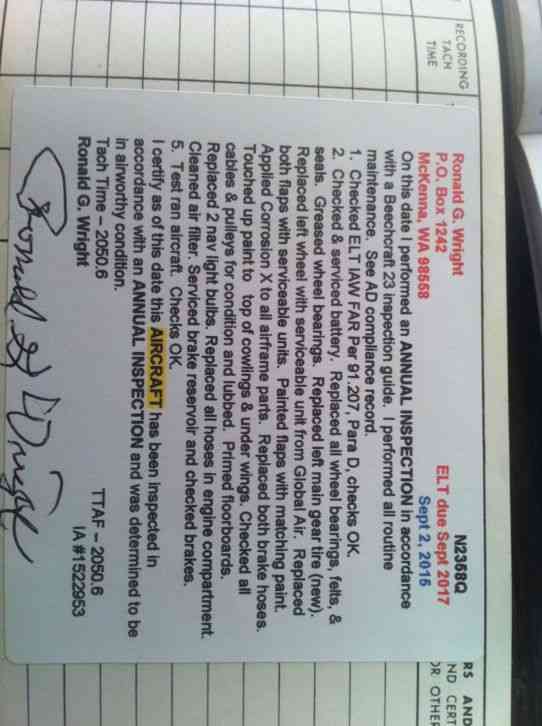 RECORDING
TACH
TIME
RS AND
ND CERT
OR OTHER
Ronald G. Wright N2358Q
P.O. Box 1242 ELT due Sept 2017
McKenna, WA 98558 Sept 2, 2015
On this date I performed an ANNUAL INSPECTION in accordance
with a Beechcraft 23 inspection guide. I performed all routine
maintenance. See AD compliance record.
1. Checked ELT IAW FAR Per 91.207, Para D, checks OK.
2. Checked & serviced battery. Replaced all wheel bearings, felts, &
seals. Greased wheel bearings. Replaced left main gear tire (new).
Replaced left wheel with serviceable unit from Global Air. Replaced
both flaps with serviceable units. Painted flaps with matching paint.
Applied Corrosion X to all airframe parts. Replaced both brake hoses.
Touched up paint to top of cowlings & under wings. Checked all
cables & pulleys for condition and lubbed. Primed floorboards.
Replaced 2 nav light bulbs. Replaced all hoses in engine compartment.
Cleaned air filter. Serviced brake reservoir and checked brakes.
5. Test ran aircraft. Checks OK.
I certify as of this date this AIRCRAFT has been inspected in
accordance with an ANNUAL INSPECTION and was determined to be
in airworthy condition.
Tach Time – 2050.6 TTAF – 2050.6
Ronald G. Wright IA #1522953
Ronald G Wright